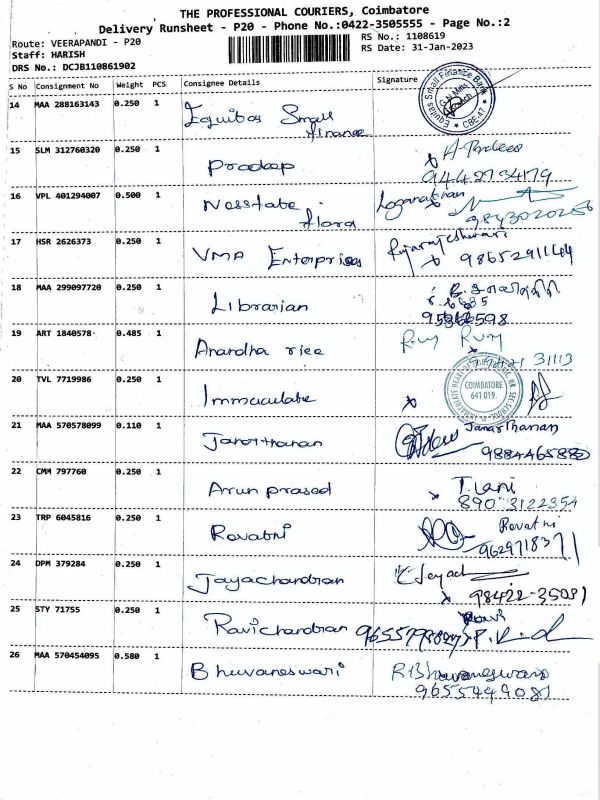 THE PROFESSIONAL COURIERS, Coimbatore
Delivery Runsheet - P20 - Phone No.:0422-3505555 - Page No.:2
Route: VEERAPANDI - P20
RS No.: 1108619
Staff: HARISH
RS Date: 31-Jan-2023
DRS No.: DCJB110861902
S No Consignment No Weight PCS Consignee Details Signature
14 MAA 288163143 0.250 1 Equitas Small
finance
Equitas Small Finance Bank
15 SLM 312760320 0.250 1 Pradeep
9442734179
16 VPL 401294007 0.500 1 Loganathan
9843020256
17 HSR 2626373 0.250 1 VMA Enterprises Rajarajeshwari
18 MAA 299097720 0.250 1 Librarian
19 ART 1840578- 0.485 1 Anandha
31113
20 TVL 7719986 0.250 1 Immaculate
COIMBATORE
641 019.
21 MAA 570578099 0.110 1 Janarthanan Janarthanan
9884465880
22 CMM 797760 0.250 1 Arun prasad
890 3122354
23 TRP 6045816 0.250 1 Revathi Revathi
9629718371
24 DPM 379284 0.250 1 Jayachandran
98422-35081
25 STY 71755 0.250 1 Ravichandran
26 MAA 570454095 0.580 1 Bhuvaneswari R.Bhuvaneswari
9655449081